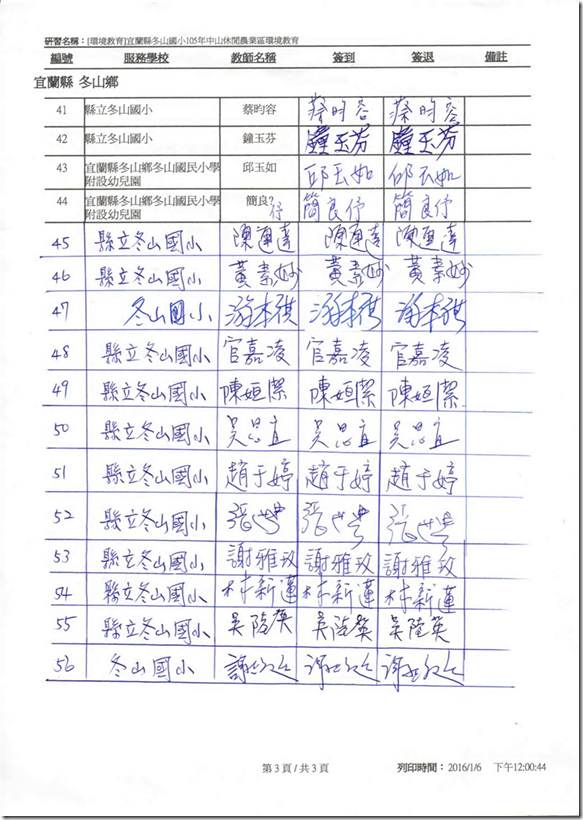 研習名稱：[環境教育]宜蘭縣冬山國小105年中山休閒農業區環境教育
編號 服務學校 教師名稱 簽到 簽退 備註
宜蘭縣 冬山鄉
41 縣立冬山國小 蔡昀容 蔡昀容 蔡昀容
42 縣立冬山國小 鐘玉芬 鐘玉芬 鐘玉芬
43 宜蘭縣冬山鄉冬山國民小學 邱玉如 邱玉如 邱玉如
附設幼兒園
44 宜蘭縣冬山鄉冬山國民小學 簡良? 簡良伃 簡良伃
附設幼兒園 伃
45 縣立冬山國小 陳 達 陳 達 陳 達
46 縣立冬山國小 黃素妙 黃素妙 黃素妙
47 冬山國小
48 縣立冬山國小 官嘉凌 官嘉凌 官嘉凌
49 縣立冬山國小 陳姮潔 陳姮潔 陳姮潔
50 縣立冬山國小 吳思宜 吳思宜 吳思宜
51 縣立冬山國小 趙于婷 趙于婷 趙于婷
52 縣立冬山國小 張 張 張
53 縣立冬山國小 謝雅玫 謝雅玫 謝雅玫
54 縣立冬山國小 林新蓮 林新蓮 林新蓮
55 縣立冬山國小 吳陸英 吳陸英 吳陸英
56 冬山國小 謝 謝 謝
第 3 頁 / 共 3 頁 列印時間： 2016/1/6 下午12:00:44